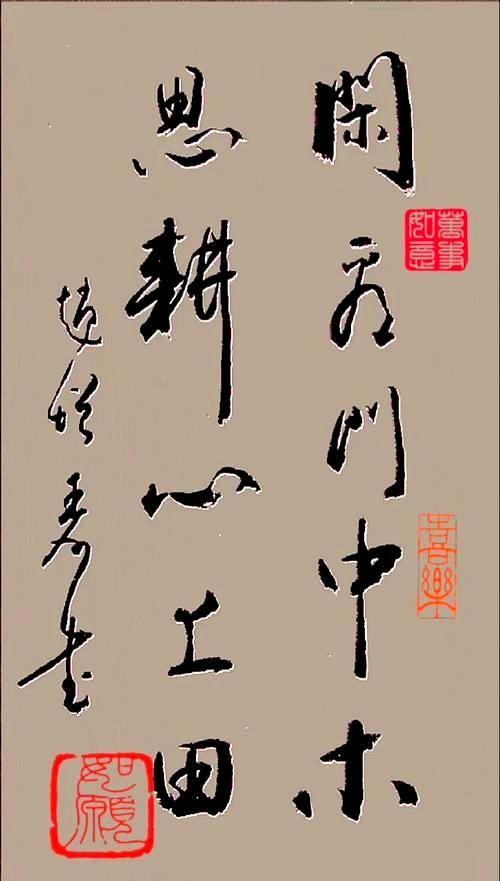 閑看門中木
思耕心上田
趙 書
萬事如意
喜樂
如願